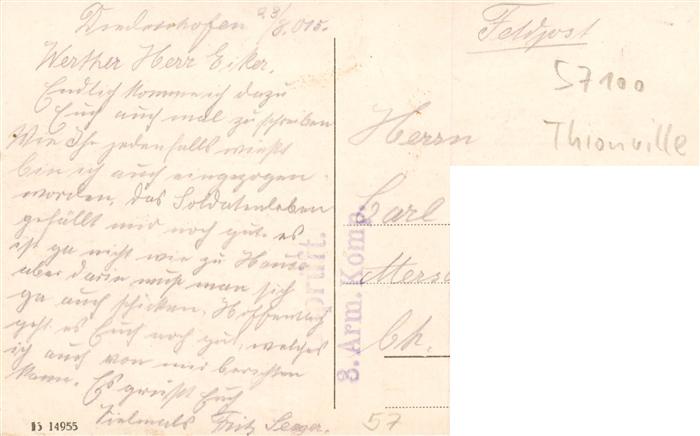 Diedenhofen 23/8.015.
Werther Herr Eiker.
Endlich komme ich dazu
Euch auch mal zu schreiben
Wie Ihr jedenfalls wießt
bin ich auch eingezogen
worden, das Soldatenleben
gefällt mir noch gut. es
ist ga nicht wie zu Hause
aber darin muß man sich
ga auch schicken. Hoffentlich
geht es Euch noch gut, welches
ich auch von mir berichten
kann. Es grüßt Euch
Vielmals Fritz Seeger.
14955
Feldpost
57100
Thionville
Herrn
Carl
Ch.
prüft.
3. Arm. Komp.
57